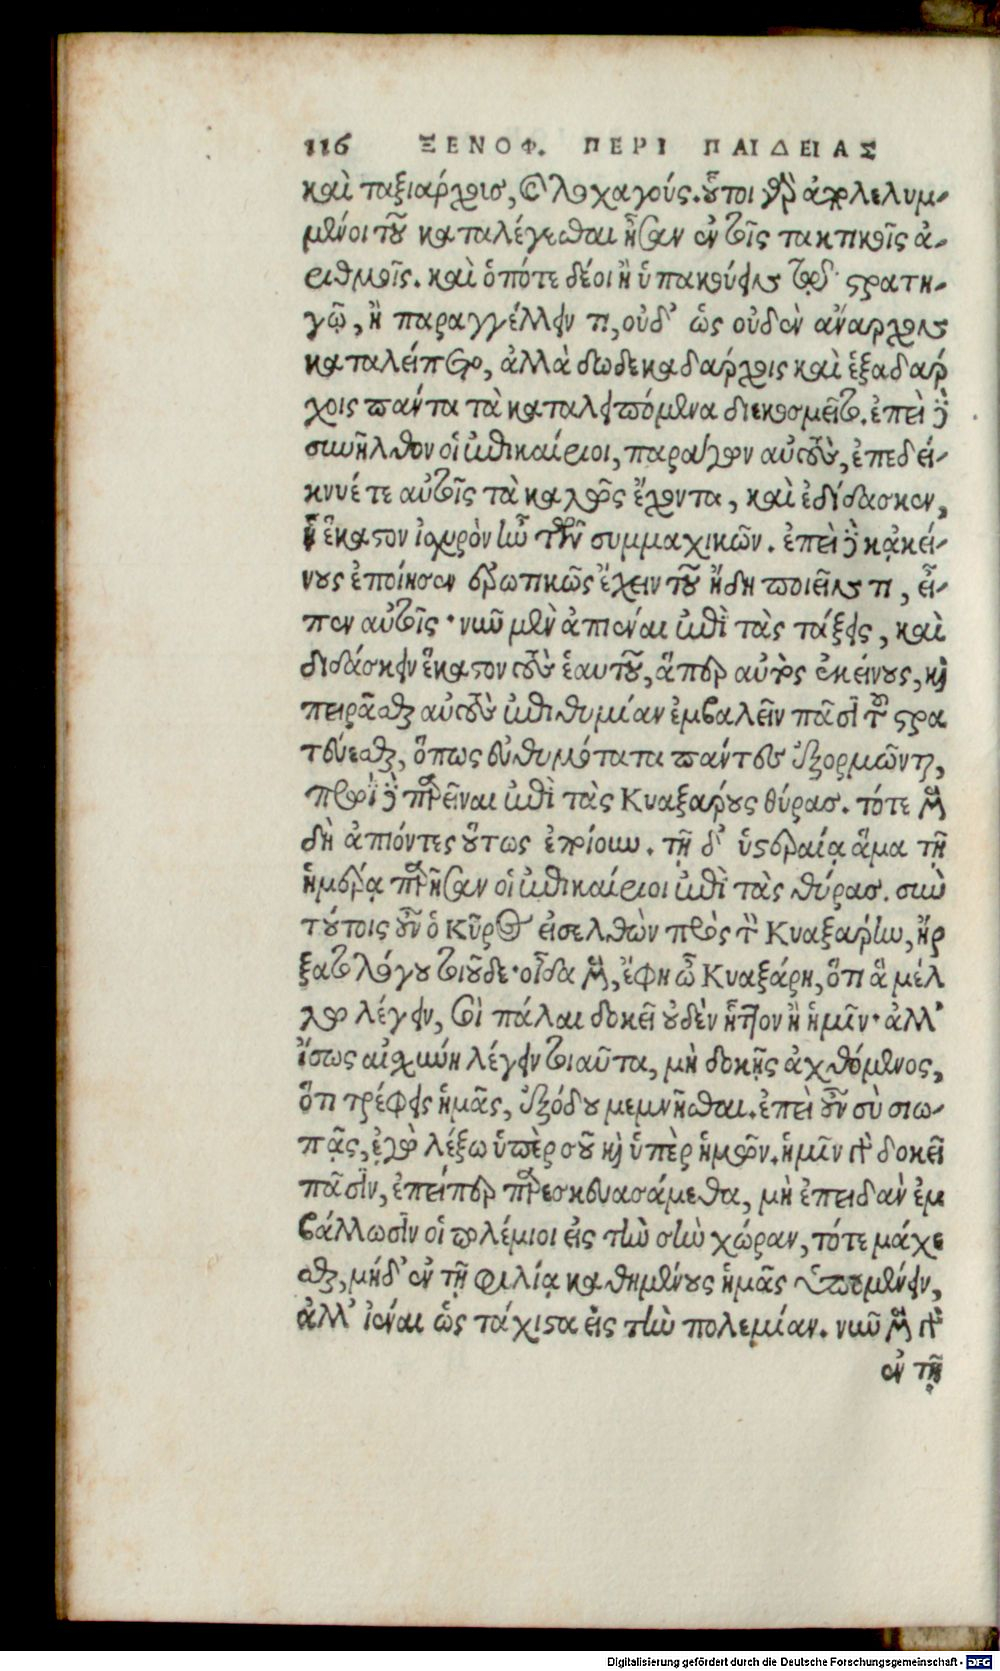 116 ΞΕΝΟΦ. ΠΕΡΙ ΠΑΙΔΕΙΑΣ
καὶ ταξιάρχοις, καὶ λοχαγούς. οὗτοι γὰρ ἀπολελυμ-
μένοι τοῦ καταλέγεσθαι ἦσαν ἐν τοῖς τακτικοῖς ἀ-
ριθμοῖς. καὶ ὁπότε δέοι ἢ ὑπακούειν τῷ στρατη-
γῷ, ἢ παραγγέλλειν τι, οὐδ' ὡς οὐδὲν ἄναρχον
καταλείπετο, ἀλλὰ δωδεκαδάρχοις καὶ ἑξαδάρ
χοις πάντα τὰ καταλειπόμενα διεκοσμεῖτο. ἐπεὶ δὲ
συνῆλθον οἱ ἐπικαίριοι, παράγων αὐτοὺς, ἐπεδεί-
κνυέ τε αὐτοῖς τὰ καλῶς ἔχοντα, καὶ ἐδίδασκεν,
ᾗ ἕκαστον ἰσχυρὸν ἦν τῶν συμμαχικῶν. ἐπεὶ δὲ κἀκεί-
νους ἐποίησεν ἐρωτικῶς ἔχειν τοῦ ἤδη ποιεῖν τι, εἶ-
πεν αὐτοῖς· νῦν μὲν ἀπιέναι ἐπὶ τὰς τάξεις, καὶ
διδάσκειν ἕκαστον τοὺς ἑαυτοῦ, ἅπερ αὐτὸς ἐκείνους, καὶ
πειρᾶσθαι αὐτοὺς ἐπιθυμίαν ἐμβαλεῖν πᾶσι τοῦ στρα
τεύεσθαι, ὅπως εὐθυμότατα πάντες ἐξορμῶνται,
πρωῒ δὲ παρεῖναι ἐπὶ τὰς Κυαξάρους θύρας. τότε μὲν
δὴ ἀπιόντες οὕτως ἐποίουν. τῇ δ' ὑστεραίᾳ ἅμα τῇ
ἡμέρᾳ παρῆσαν οἱ ἐπικαίριοι ἐπὶ τὰς θύρας. σὺν
τούτοις οὖν ὁ Κῦρος εἰσελθὼν πρὸς τὸν Κυαξάρην, ἤρ
ξατο λόγου τοιοῦδε· οἶδα μὲν, ἔφη ὦ Κυαξάρη, ὅτι ἃ μέλ
λω λέγειν, σοὶ πάλαι δοκεῖ οὐδὲν ἧττον ἢ ἡμῖν· ἀλλ'
ἴσως αἰσχύνῃ λέγειν τοιαῦτα, μὴ δοκῇς ἀχθόμενος,
ὅτι τρέφεις ἡμᾶς, ἐξόδου μεμνῆσθαι. ἐπεὶ οὖν σὺ σιω-
πᾷς, ἐγὼ λέξω ὑπὲρ σοῦ καὶ ὑπὲρ ἡμῶν. ἡμῖν γὰρ δοκεῖ
πᾶσιν, ἐπείπερ παρεσκευασάμεθα, μὴ ἐπειδὰν ἐμ
βάλλωσιν οἱ πολέμιοι εἰς τὴν σὴν χώραν, τότε μάχε
σθαι, μήδ' ἐν τῇ φιλίᾳ καθημένους ἡμᾶς ὑπομένειν,
ἀλλ' ἰέναι ὡς τάχιστα εἰς τὴν πολεμίαν. νῦν μὲν γὰρ
ἐν τῇ
Digitalisierung gefördert durch die Deutsche Forschungsgemeinschaft - DFG